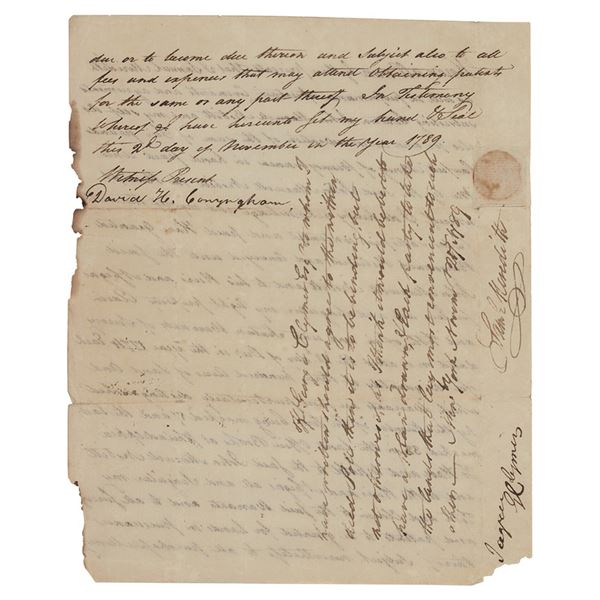 due or to become due thereon and Subject also to all
fees and expences that may attend Obtaining patents
for the same or any part thereof In Testimony
Whereof I have hereunto Set my hand & Seal
this 2d. day of November in the Year 1789
Witness Present
David H. Conyngham
Saml Meredith
If George Clymer Esq to whom I
have written should agree to the within
deed Poll then it is to be binding, but
not otherwise, as I think it would be best to
have a plan drawn & each party to take
the lands that lay most convenient to each
other — New York Novem 20th 1789
I agree
G Clymer